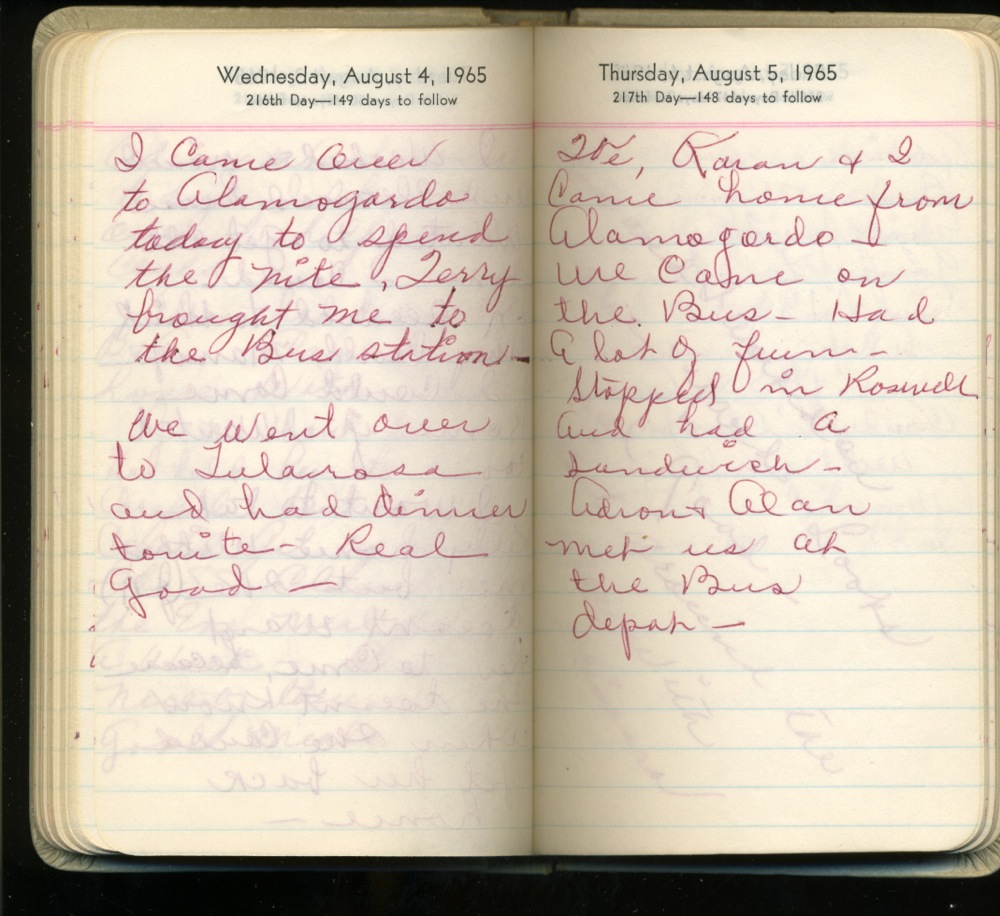 Wednesday, August 4, 1965
216th Day—149 days to follow
I Came Over
to Alamogardo
today to spend
the nite, Terry
brought me to
the Bus station —
We went over
to Tularosa
and had dinner
tonite - Real
Good —
Thursday, August 5, 1965
217th Day—148 days to follow
Karan & I
Came home from
Alamogordo —
we Came on
the Bus - Had
A lot of funn -
Stopped in Roswell
And had A
sandwich -
Adron & Alan
met us at
the Bus
depot —